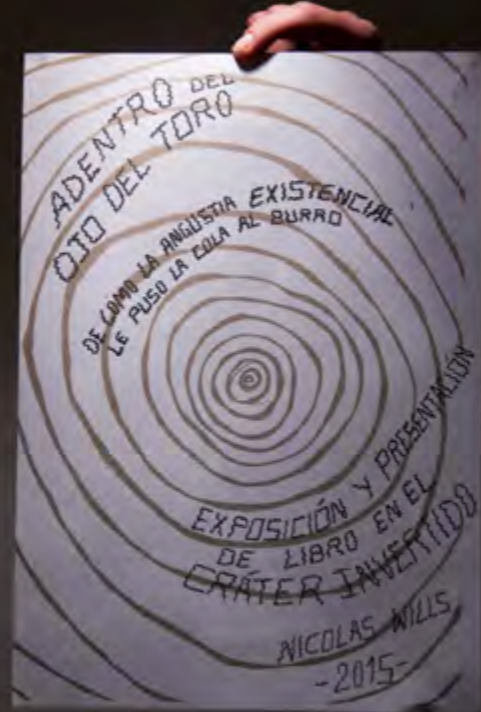 ADENTRO DEL
OJO DEL TORO
DE COMO LA ANGUSTIA EXISTENCIAL
LE PUSO LA COLA AL BURRO
EXPOSICIÓN Y PRESENTACIÓN
DE LIBRO EN EL
CRÁTER INVERTIDO
NICOLAS WILLS
-2015-